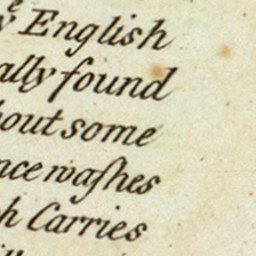 yͤ English
ally found
out some
nce waſhes
h Carries